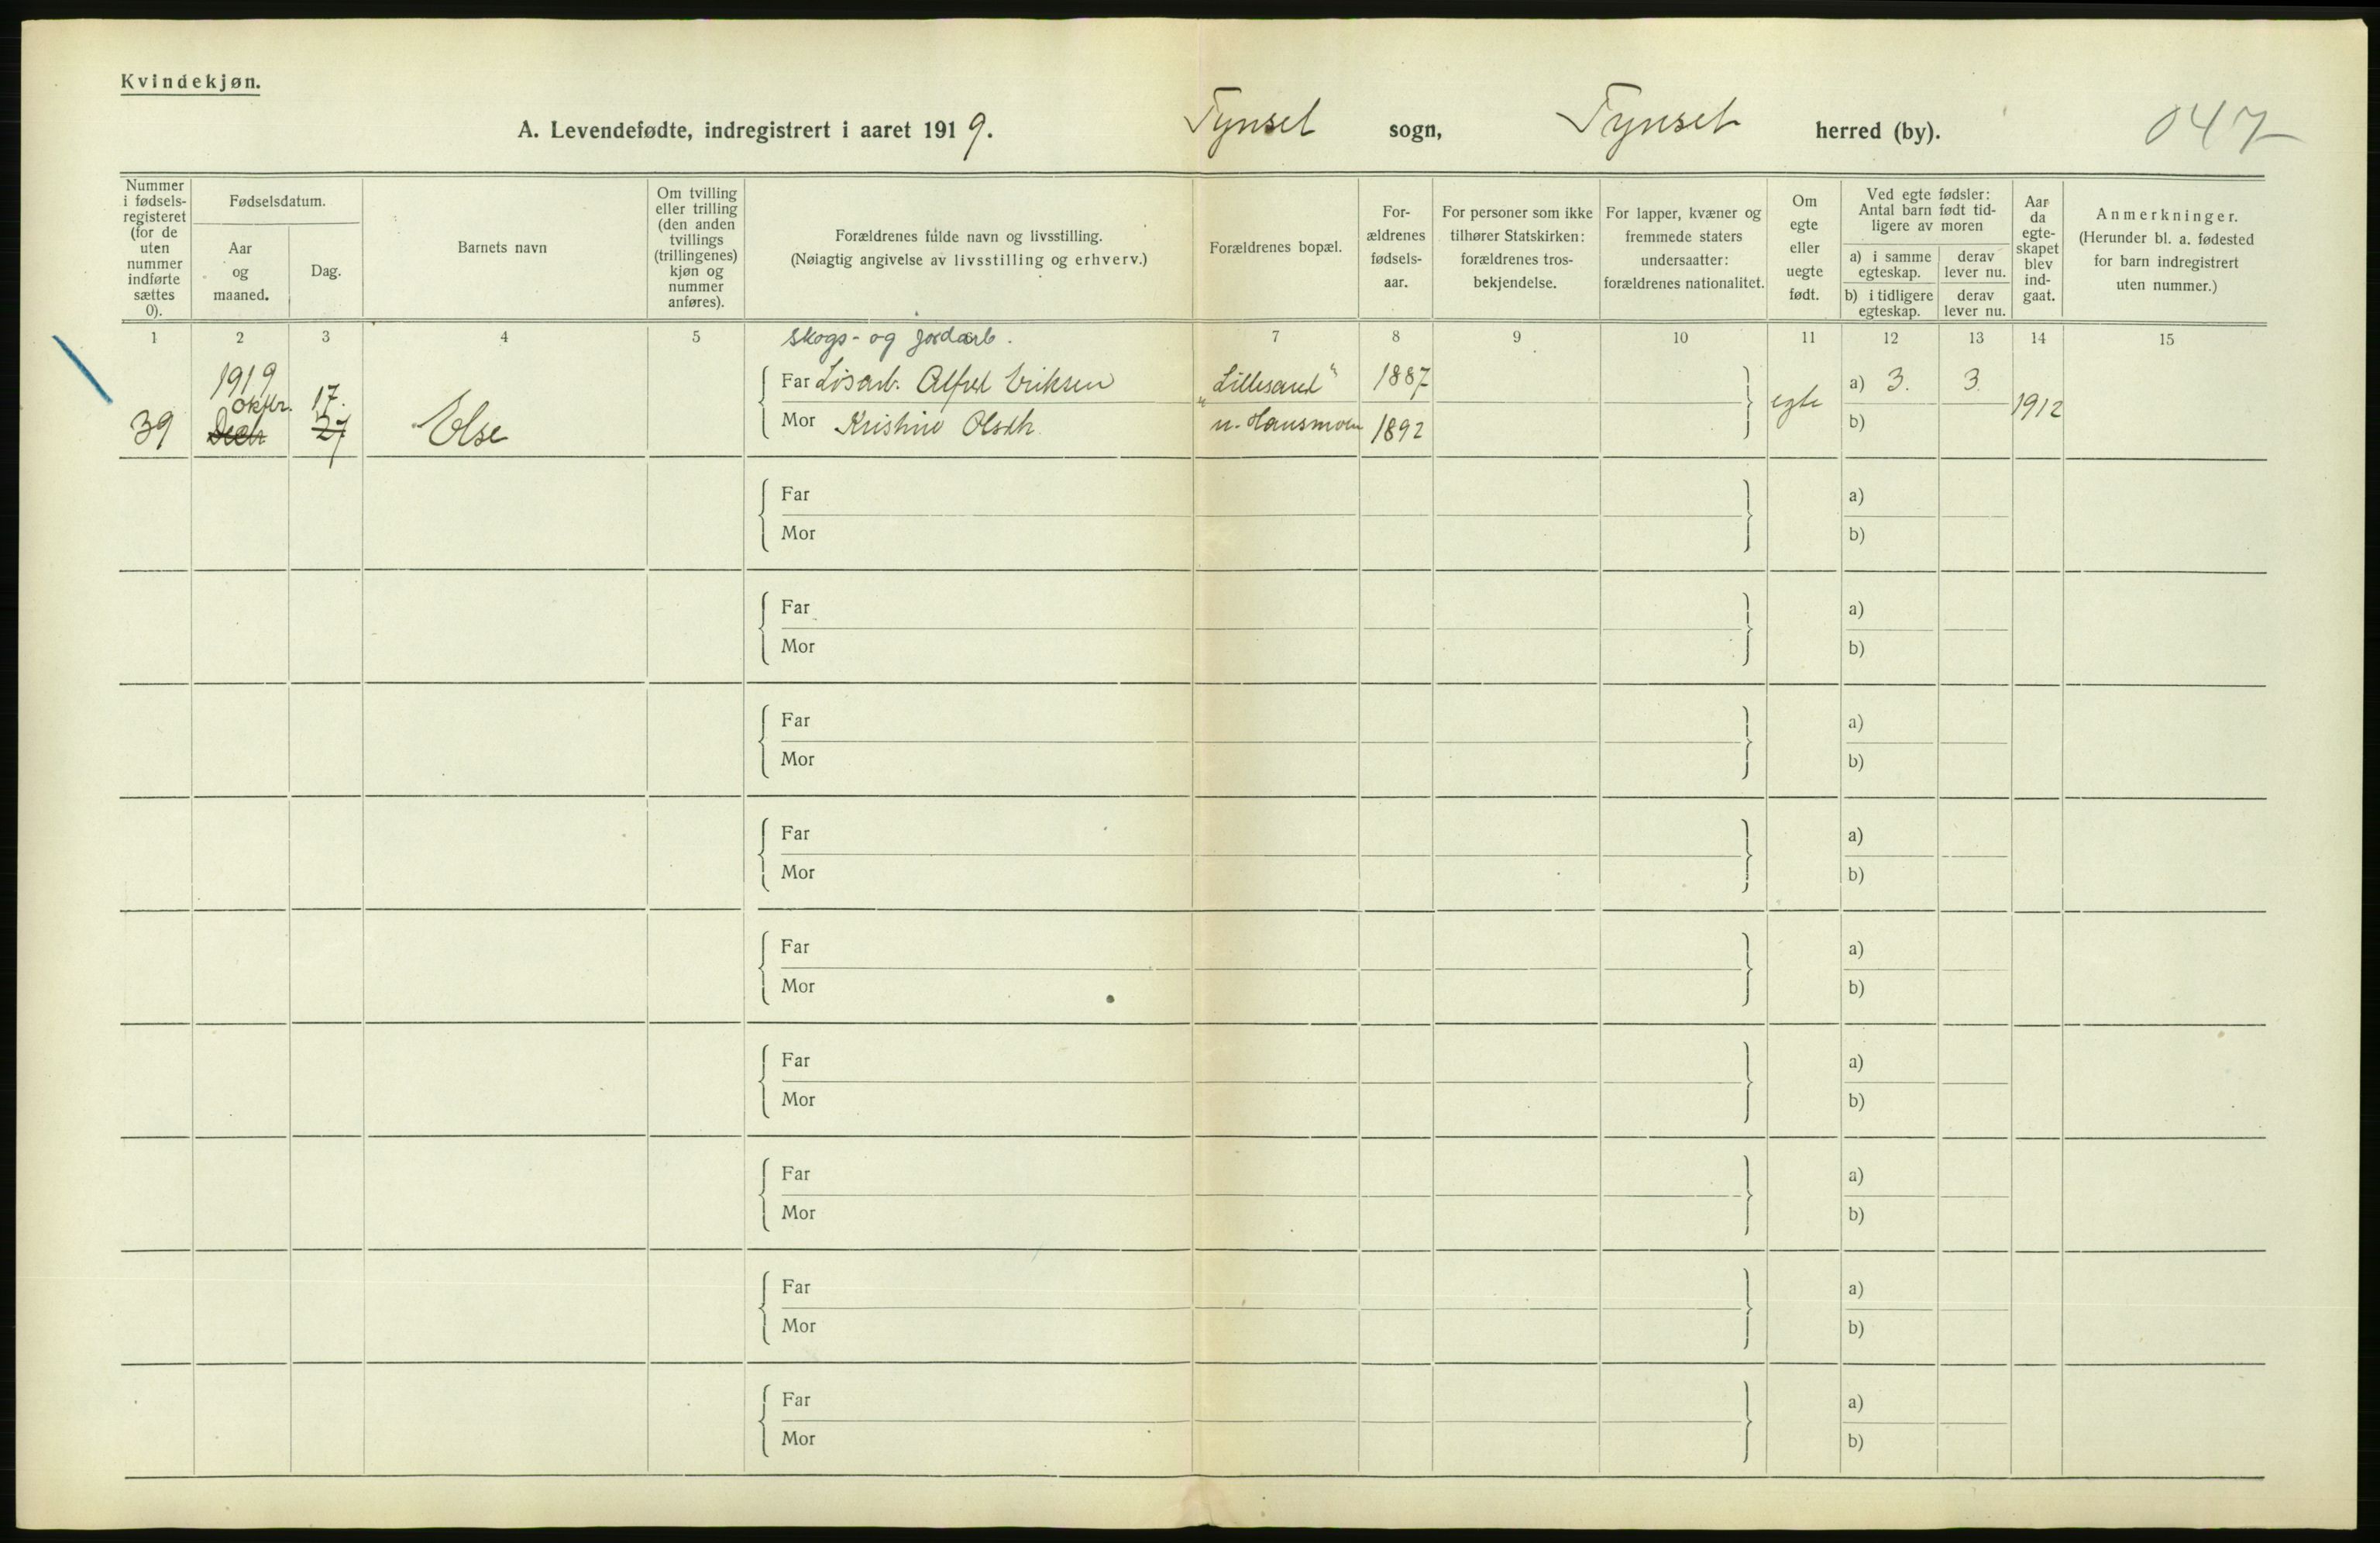 Kvindekjøn.
A. Levendefødte, indregistrert i aaret 1919. Tynset sogn, Tynset herred (by). 047
Nummer i fødsels-registeret (for de uten nummer indførte sættes 0).
Fødselsdatum.
Aar og maaned.
Dag.
Barnets navn
Om tvilling eller trilling (den anden tvillings (trillingenes) kjøn og nummer anføres).
Forældrenes fulde navn og livsstilling.
(Nøiagtig angivelse av livsstilling og erhverv.)
Forældrenes bopæl.
For-ældrenes fødsels-aar.
For personer som ikke tilhører Statskirken: forældrenes tros-bekjendelse.
For lapper, kvæner og fremmede staters undersaatter: forældrenes nationalitet.
Om egte eller uegte født.
Ved egte fødsler: Antal barn født tid-ligere av moren
a) i samme egteskap.
derav lever nu.
b) i tidligere egteskap.
derav lever nu.
Aar da egte-skapet blev ind-gaat.
Anmerkninger.
(Herunder bl. a. fødested for barn indregistrert uten nummer.)
1 2 3 4 5 7 8 9 10 11 12 13 14 15
Skogs- og jordarb.
1919
Oktbr. 17.
39 Decbr 27 Else
Far Løsarb. Alfred Eriksen "Lillesand" 1887
Mor Kristine Olsdtr. 1892
egte a) 3. 3. 1912
b)
Far a)
Mor b)
Far a)
Mor b)
Far a)
Mor b)
Far a)
Mor b)
Far a)
Mor b)
Far a)
Mor b)
Far a)
Mor b)
Far a)
Mor b)
Far a)
Mor b)